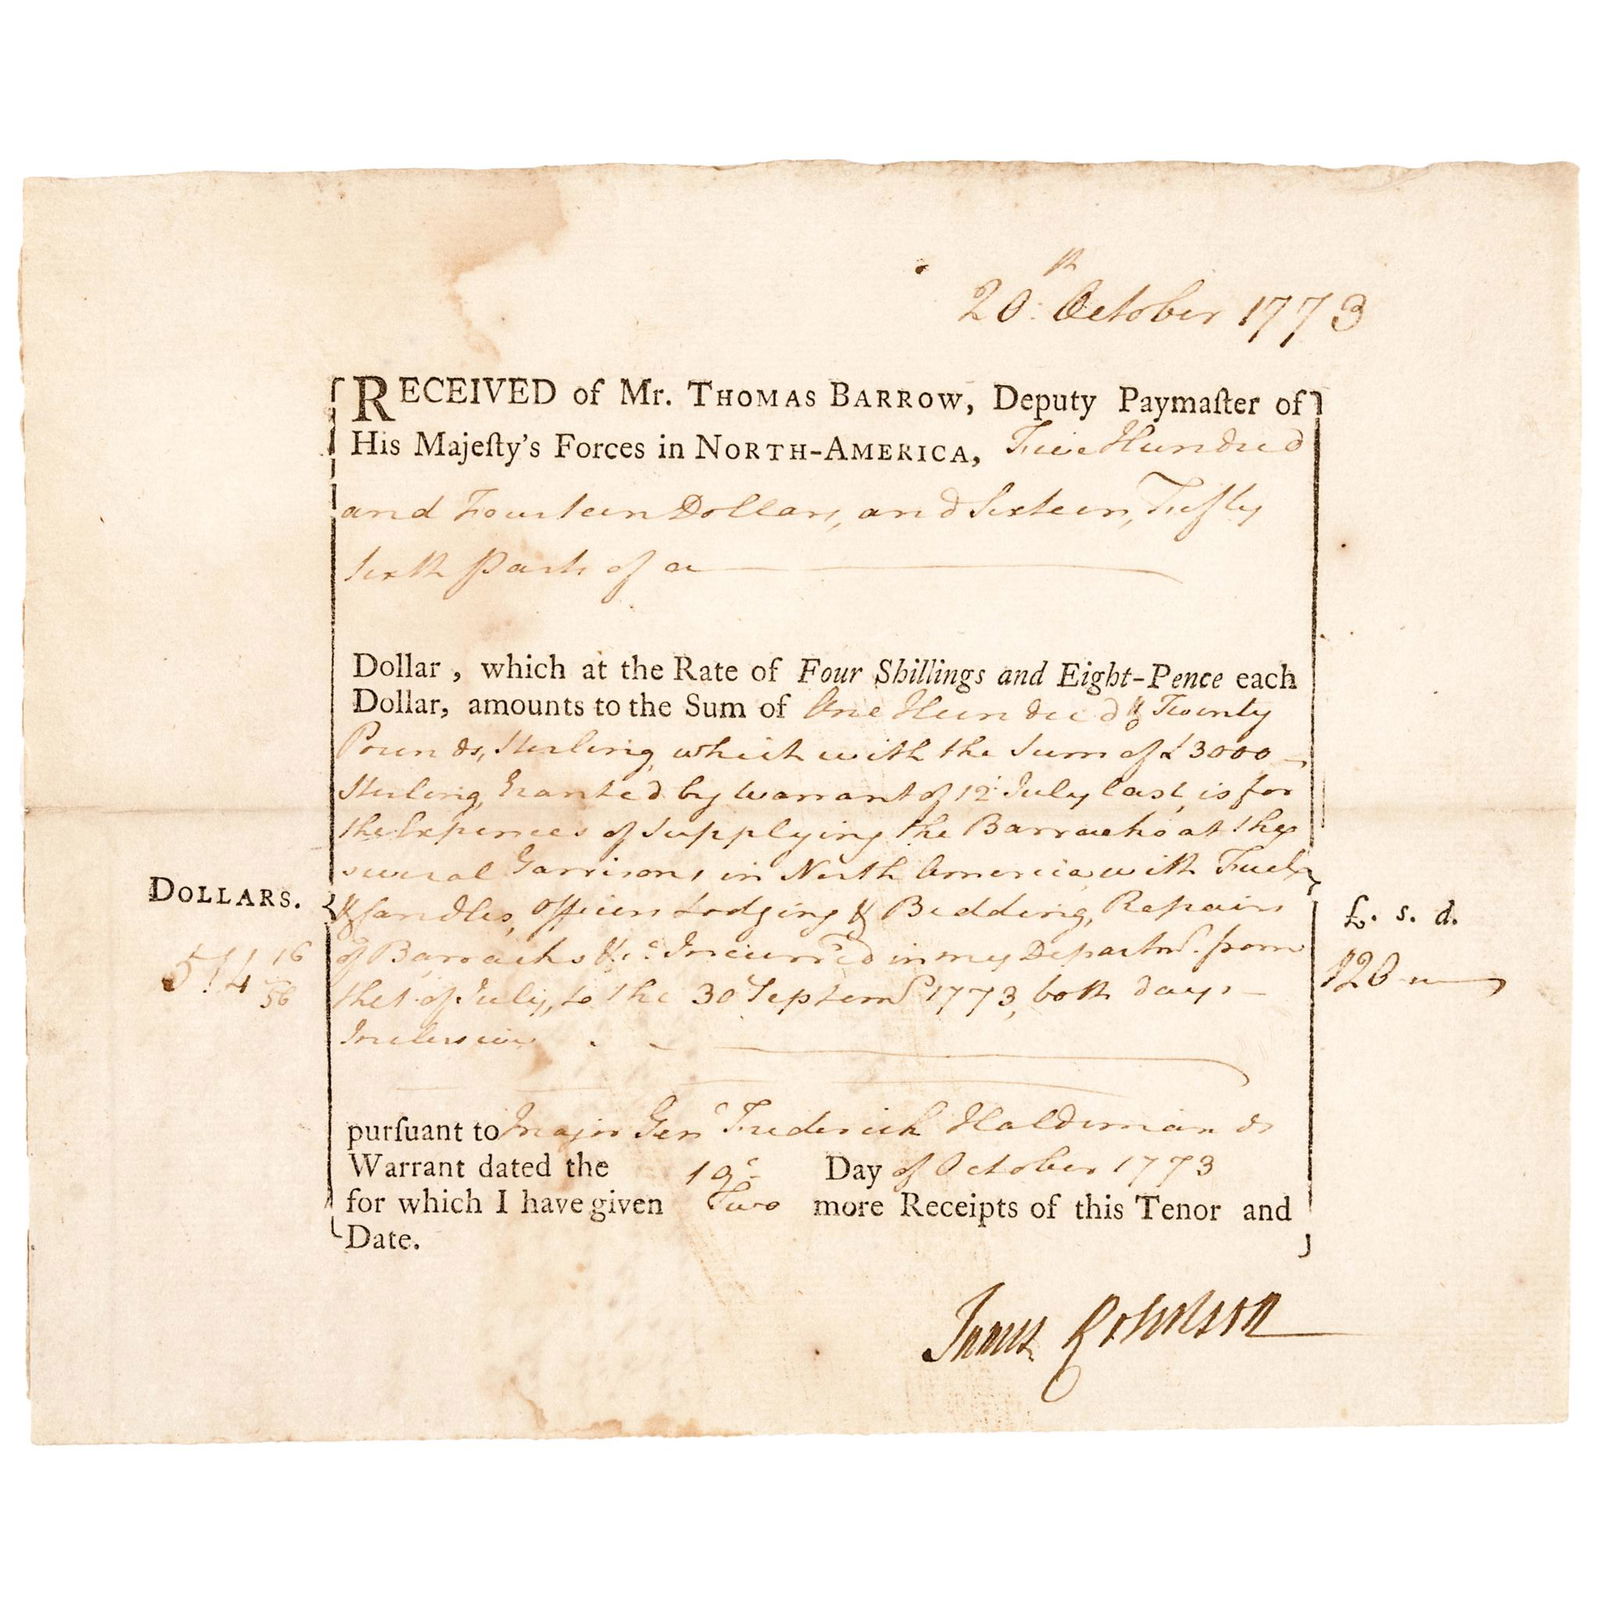 20th October 1773
RECEIVED of Mr. THOMAS BARROW, Deputy Paymaſter of
His Majeſty's Forces in NORTH-AMERICA, Five Hundred
and Fourteen Dollars, and Sixteen, Fifty
Sixth Parts of a
Dollar, which at the Rate of Four Shillings and Eight-Pence each
Dollar, amounts to the Sum of One Hundred & Twenty
Pounds, Sterling, which with the Sum of £3000
Sterling, Granted by Warrant of 12 July last, is for
the Expences of Supplying the Barracks at the
several Garrisons in North America with Fuel
& Candles, Officers Lodging & Bedding, Repairs
of Barracks &c. Incurred in my Departmt. from
the 1 of July, to the 30 Septemr 1773, both days
Inclusive
DOLLARS.
514 16/56
£. s. d.
120
purſuant to Major Genl Frederick Haldimands
Warrant dated the 19 Day of October 1773
for which I have given Two more Receipts of this Tenor and
Date.
James Robertson